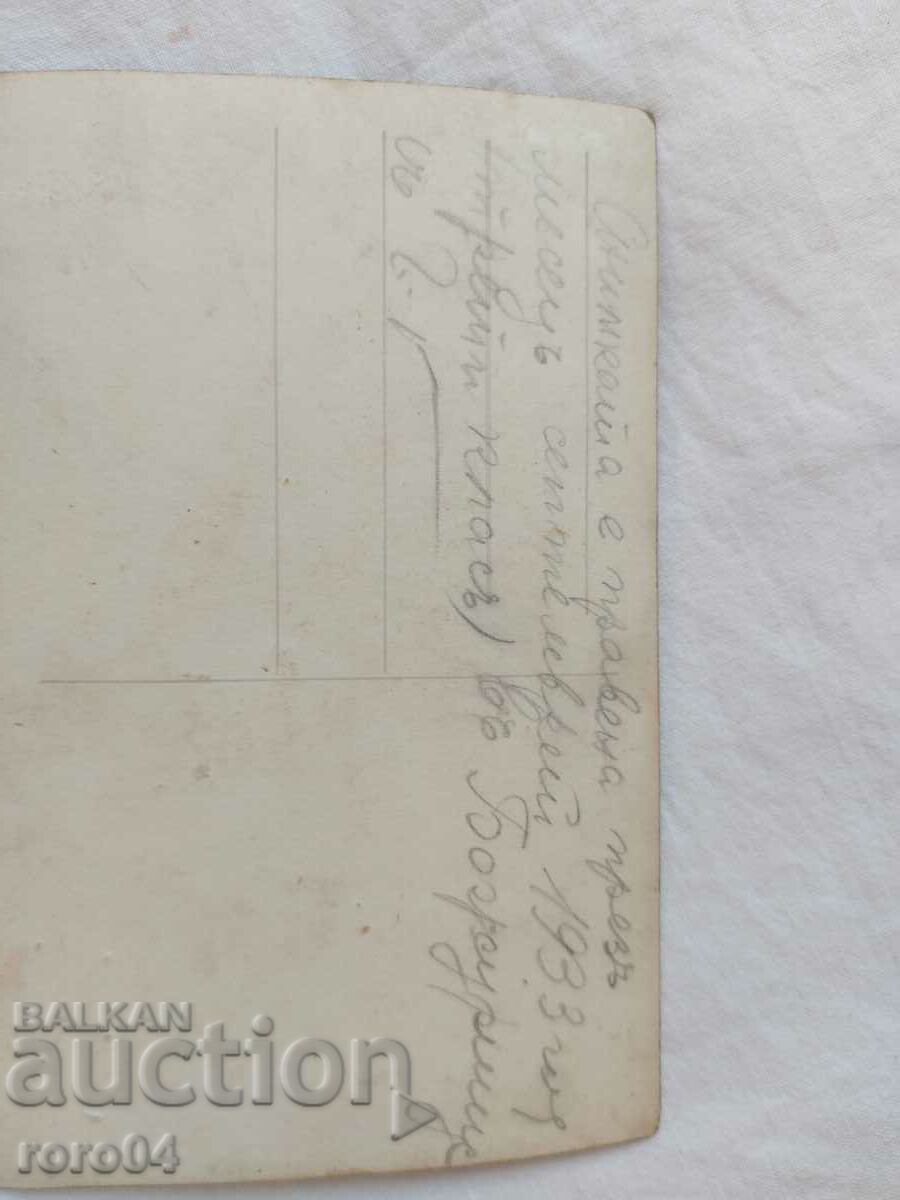 Снимката е правена презъ
месецъ септемврий 1933 год
(трети класъ) въ Божурище
съ
BALKAN
auction
roro04